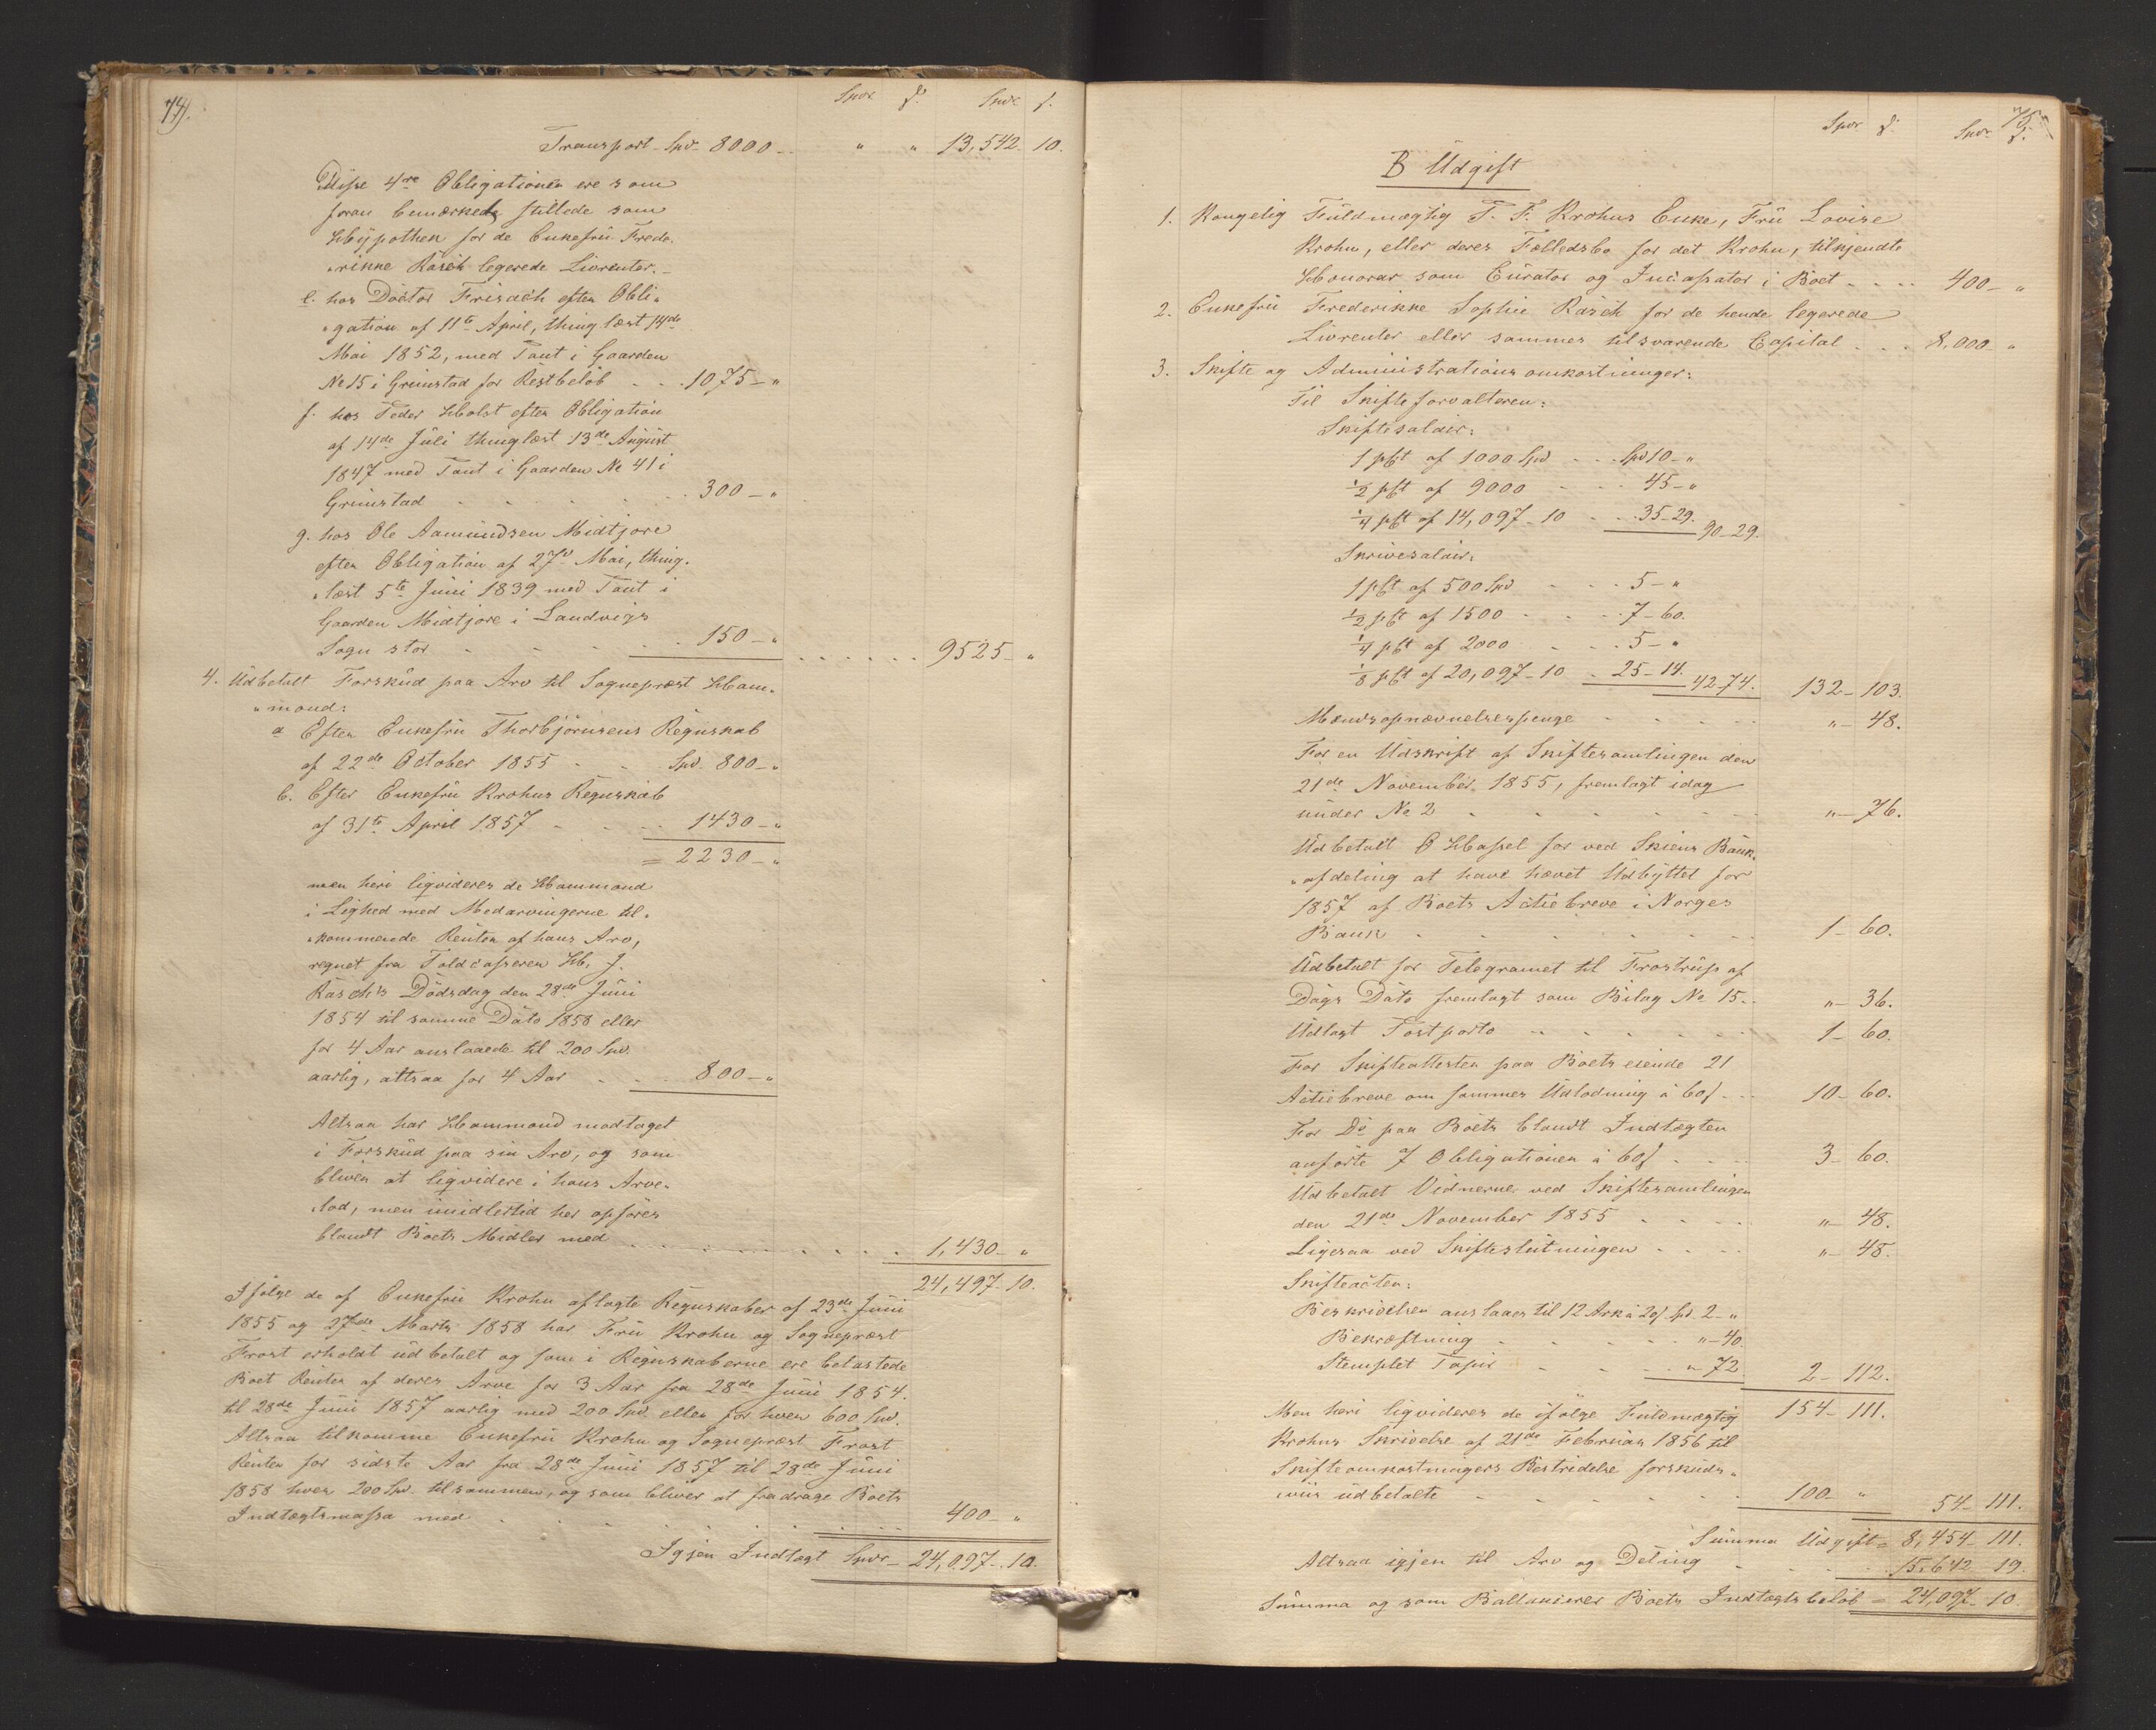 74.
Spdr. ſ. Spdr. ſ.
Transport Spd. 8000 - " " 13,542. 10.
Disse 4re Obligationer ere som
foran bemærkede stillede som
Hÿpothek for de Enkefrü Frede-
rikke Rasch legerede Livrenter.
e. hos Doctor Frisach efter Obli-
gation af 11te April, thinglæst 14de
Mai 1852, med Pant i Gaarden
No 15 i Grimstad for Restbeløb . . . 1075 - "
f. hos Peder Holst efter Obligation
af 14de Jüli thinglæst 13de Aügüst
1847 med Pant i Gaarden No 41 i
Grimstad . . . 300 - "
g. hos Ole Aamündsen Midtjore
efter Obligation af 27de Mai, thing-
læst 5te Jüni 1839 med Pant i
Gaarden Midtjore i Landvigs
Sogn stor . . . 150 - " . . . 9525 - "
4. Üdbetalt Forsküd paa Arv til Sognepræst Ham-
mond:
a Efter Enkefrü Thorbjörnsens Regnskab
af 22de October 1855 . . Spd. 800 - "
b. Efter Enkefrü Krohns Regnskab
af 31te April 1857 . . . 1430 - "
= 2230 - "
men heri liqvideres de Hammond
i Lighed med Medarvingerne til-
kommende Renter af hans Arv,
regnet fra Toldcasserer H. J.
Rasch's Dødsdag den 28de Jüni
1854 til samme Dato 1858 eller
for 4 Aar anslaaede til 200 Spd.
aarlig, altsaa for 4 Aar . . . 800 - "
Altsaa har Hammond modtaget
i Forsküd paa sin Arv, og som
bliver at liqvidere i hans Arve-
lod, men imidlertid her opføres
blandt Boets Midler med . . . 1,430 - "
24,497 - 10.
Ifølge de af Enkefrü Krohn aflagte Regnskaber af 23de Jüni
1855 og 27de Marts 1858 har Frü Krohn og Sognepræst
Frost erholdt üdbetalt og som i Regnskaberne ere belastede
Boet Renter af deres Arve for 3 Aar fra 28de Jüni 1854
til 28de Jüni 1857 aarlig med 200 Spd. eller for hver 600 Spd.
Altsaa tilkomme Enkefrü Krohn og Sognepræst Frost
Renter for sidste Aar fra 28de Jüni 1857 til 28de Jüni
1858 hver 200 Spd. tilsammen, og som bliver at fradrage Boets
Indtægtsmassa med . . . 400 - "
Igjen Indtægt Spdr. 24,097 - 10.
75.
Spdr. ſ. Spdr. ſ.
B Üdgift
1. Kongelig Füldmægtig P. F. Krohns Enke, Frü Lovise
Krohn, eller deres Fælledsbo for det Krohn, tilkjendte
Honorar som Cürator og Incassator i Boet . . . 400 - "
2. Enkefrü Frederikke Sophie Rasch for de hende legerede
Livrenter eller sammes tilsvarende Capital . . . 8,000 - "
3. Skifte og Administrations omkostninger:
Til Skifteforvalteren:
Skiftesalair:
1 pCt af 1000 Spd . . . Spd 10 - "
1/2 pCt af 9000 . . . 45 - "
1/4 pCt af 14,097 - 10 . . . 35 - 29. 90 - 29.
Skrivesalair:
1 pCt af 500 Spd . . . 5 - "
1/2 pCt af 1500 . . . 7 - 60.
1/4 pCt af 2000 . . . 5 - "
1/8 pCt af 20,097 - 10 . 25 - 14. 42 - 74. 132 - 103.
Mændsopnævnelsespenge . . . " - 48.
For en Üdskrift af Skiftesamlingen den
21de November 1855, fremlagt idag
ünder No 2 . . . " - 76.
Üdbetalt O Hassel for ved Skiens Bank-
afdeling at have hævet Üdbÿttet for
1857 af Boets Actiebreve i Norges
Bank . . . 1 - 60.
Üdbetalt for Telegramet til Frostrüp af
Dags Dato fremlagt som Bilag No 15. . " - 36.
Üdlagt Postporto . . . 1 - 60.
For Skifteattesten paa Boets eiende 21
Actiebreve om sammes Üdlodning à 60ſ . . . 10 - 60.
For Do paa Boets blandt Indtægten
anførte 7 Obligationer à 60ſ . . . 3 - 60.
Üdbetalt Vidnerne ved Skiftesamlingen
den 21de November 1855 . . . " - 48.
Ligesaa ved Skifteslütningen . . . " - 48.
Skifteacten:
Beskrivelsen anslaaes til 12 Ark à 20ſ Spd. 2 - "
Bekræftning . . . " - 40.
Stemplet Papir . . . " - 72. 2 - 112.
154 - 111.
Men heri liqvideres de ifølge Füldmægtig
Krohns Skrivelse af 21de Februar 1856 til
Skifteomkostningers Bestridelse forsküds-
viis üdbetalte . . . 100 - " 54 - 111.
Sümma Üdgift = 8,454 - 111.
Altsaa igjen til Arv og Deling . . . 15,642 - 19.
Sümma og som Ballancerer Boets Indtægtsbeløb = 24,097 - 10.